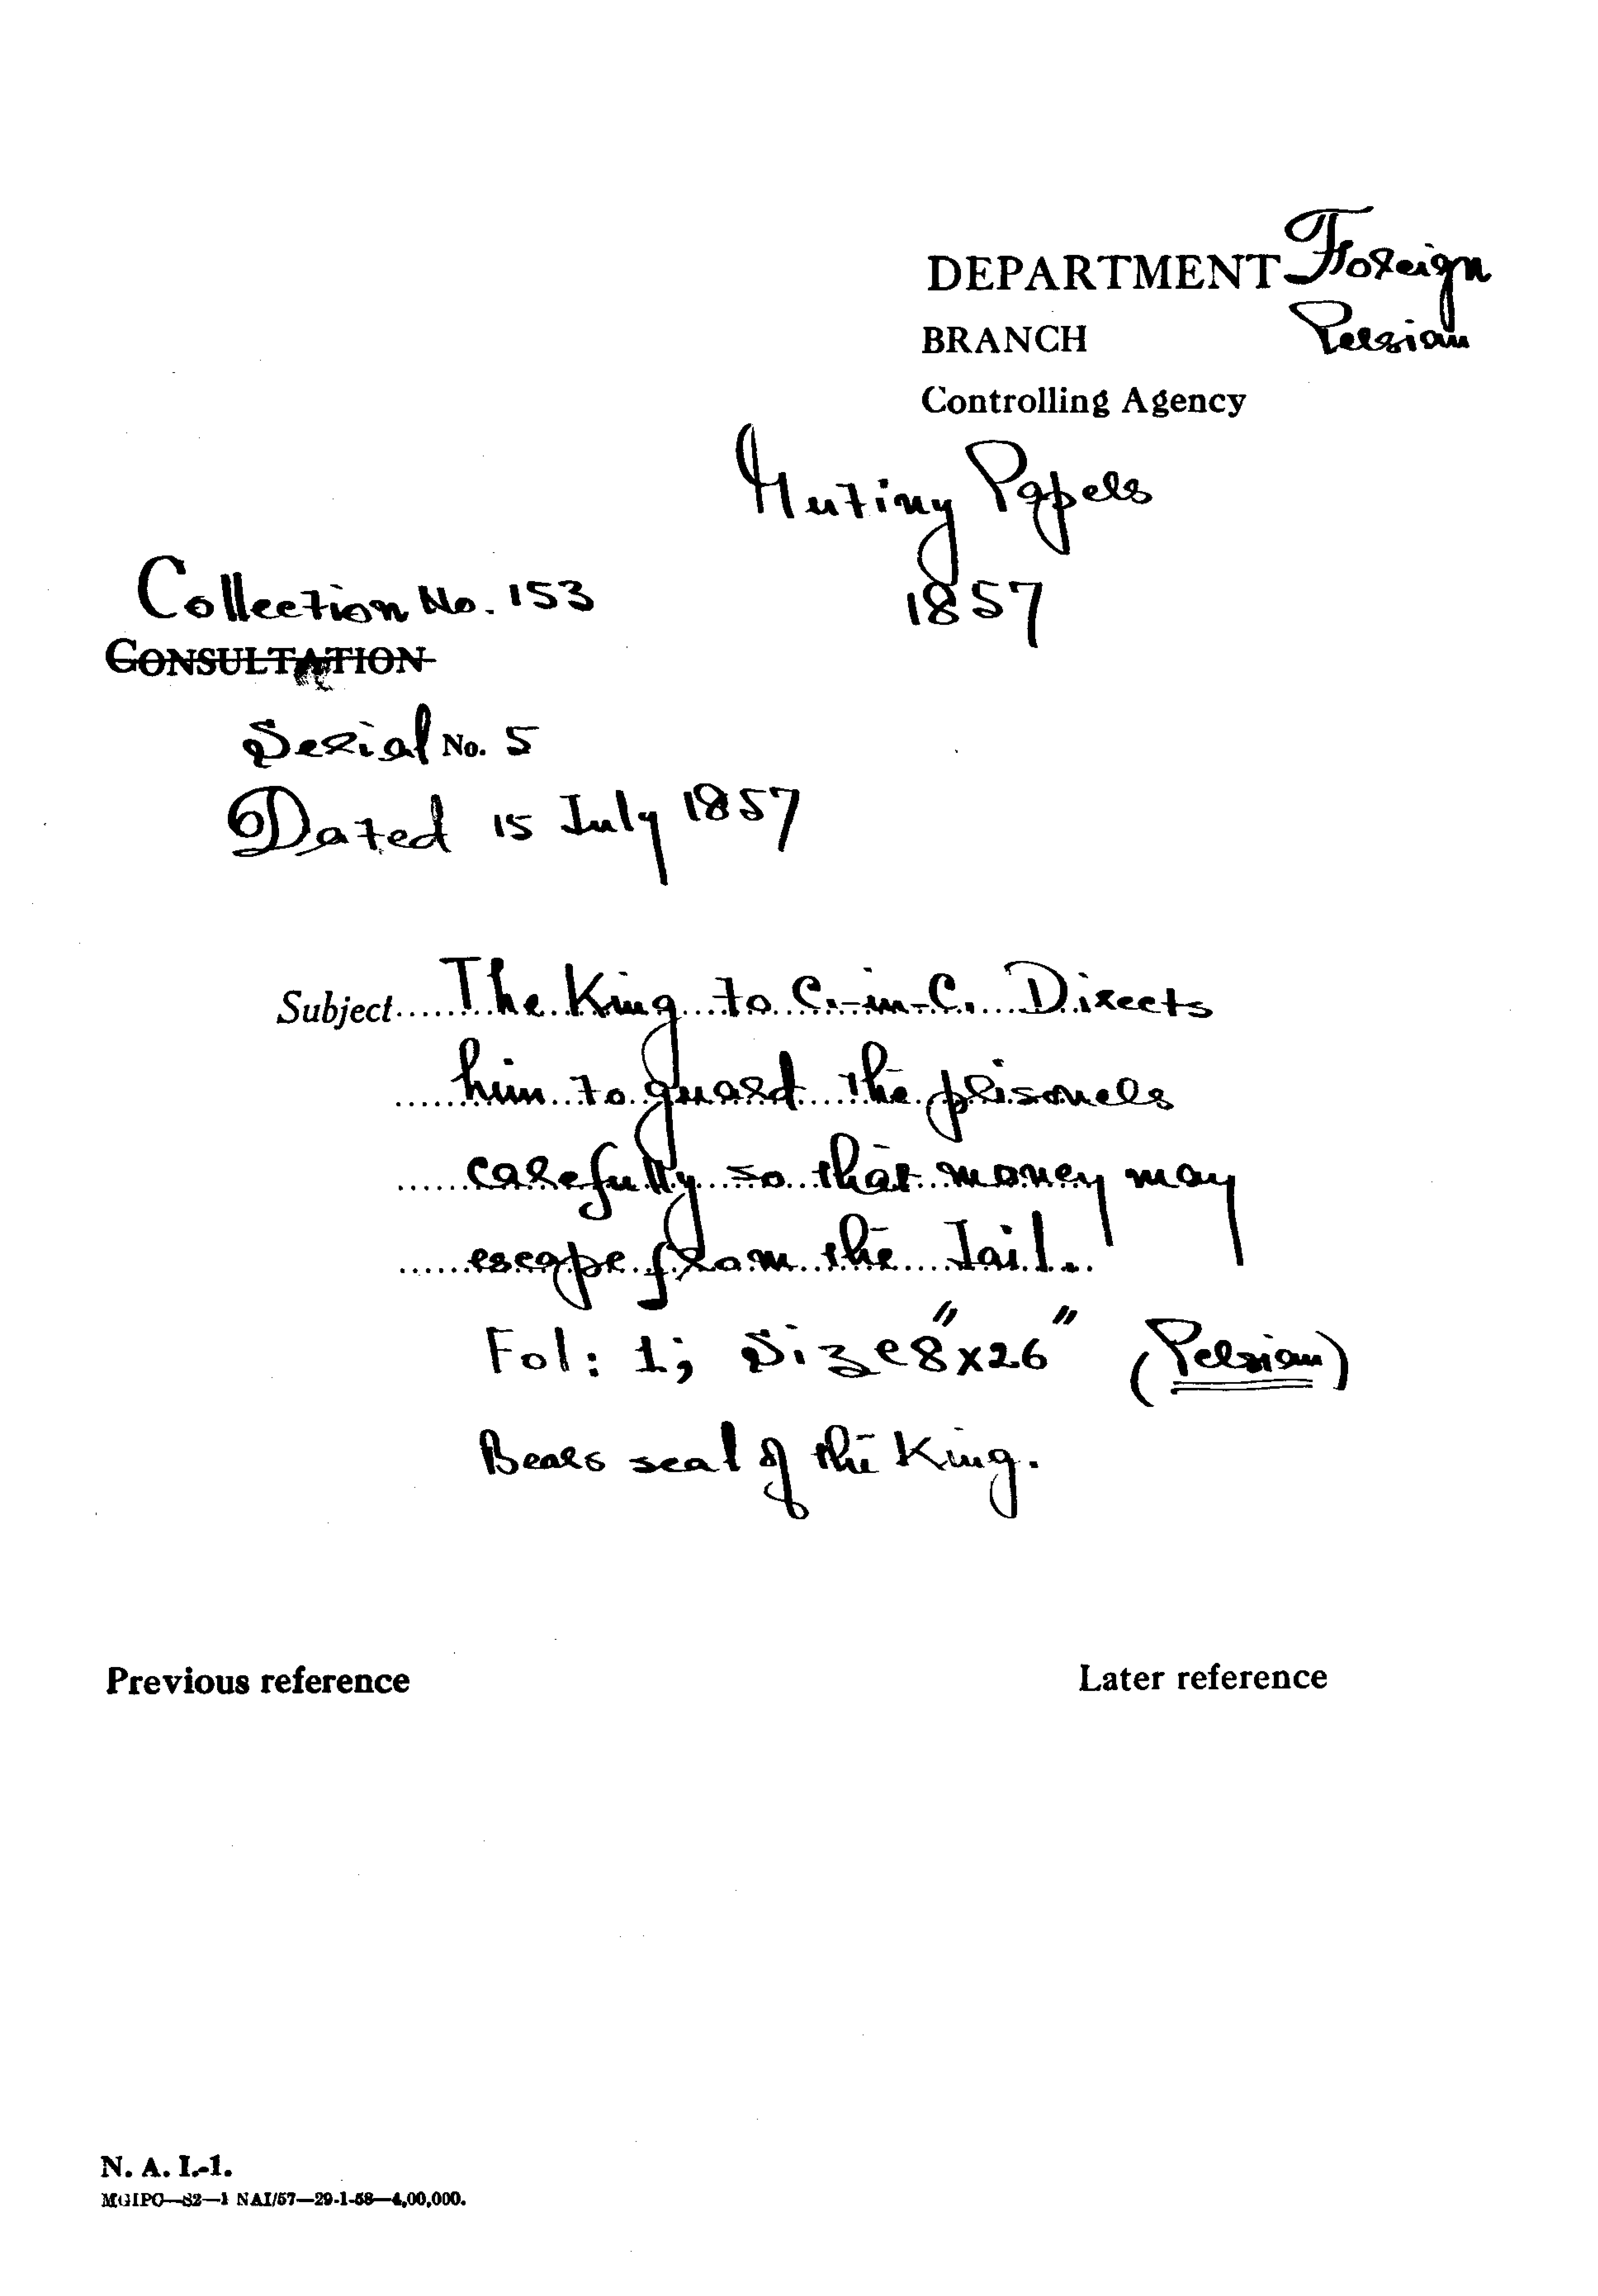 DEPARTMENT Foreign
BRANCH Persian
Controlling Agency
Mutiny Papers
1857
Collection No. 153
CONSULTATION
Serial No. 5
Dated 15 July 1857
Subject......The King to C.-in-C. Directs
......him to guard the prisoners
......carefully so that money may
......escape from the Jail.
Fol: 1; Size 8"x26" (Persian)
Bears seal of the King.
Previous reference
Later reference
N. A. I.-1.
MGIPC—S2—1 NAI/57—29-1-58—4,00,000.